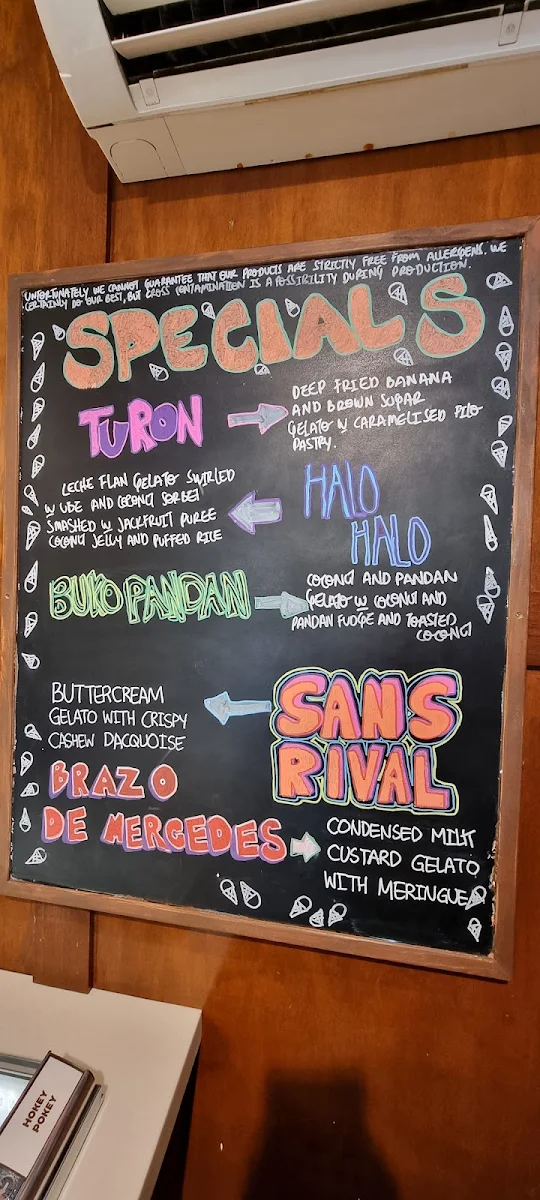 UNFORTUNATELY WE CANNOT GUARANTEE THAT OUR PRODUCTS ARE STRICTLY FREE FROM ALLERGENS. WE
CERTAINLY DO OUR BEST, BUT CROSS CONTAMINATION IS A POSSIBILITY DURING PRODUCTION.
SPECIALS
TURON
DEEP FRIED BANANA
AND BROWN SUGAR
GELATO W CARAMELISED FILO
PASTRY.
HALO
HALO
LECHE FLAN GELATO SWIRLED
W UBE AND COCONUT SORBET
SMASHED W JACKFRUIT PUREE
COCONUT JELLY AND PUFFED RICE
BUKO PANDAN
COCONUT AND PANDAN
GELATO W COCONUT AND
PANDAN FUDGE AND TOASTED
COCONUT
SANS
RIVAL
BUTTERCREAM
GELATO WITH CRISPY
CASHEW DACQUOISE
BRAZO
DE MERCEDES
CONDENSED MILK
CUSTARD GELATO
WITH MERINGUE
HOKEY
POKEY